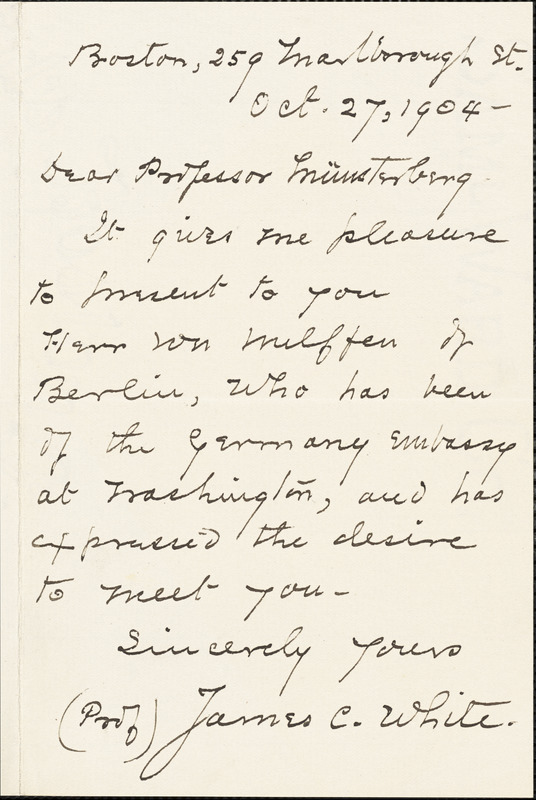 Boston, 259 Marlborough St.
Oct. 27, 1904 -
Dear Professor Münsterberg
It gives me pleasure
to present to you
Herr von of
Berlin, who has been
of the Germany Embassy
at Washington, and has
expressed the desire
to meet you -
Sincerely yours
(Prof) James C. White.